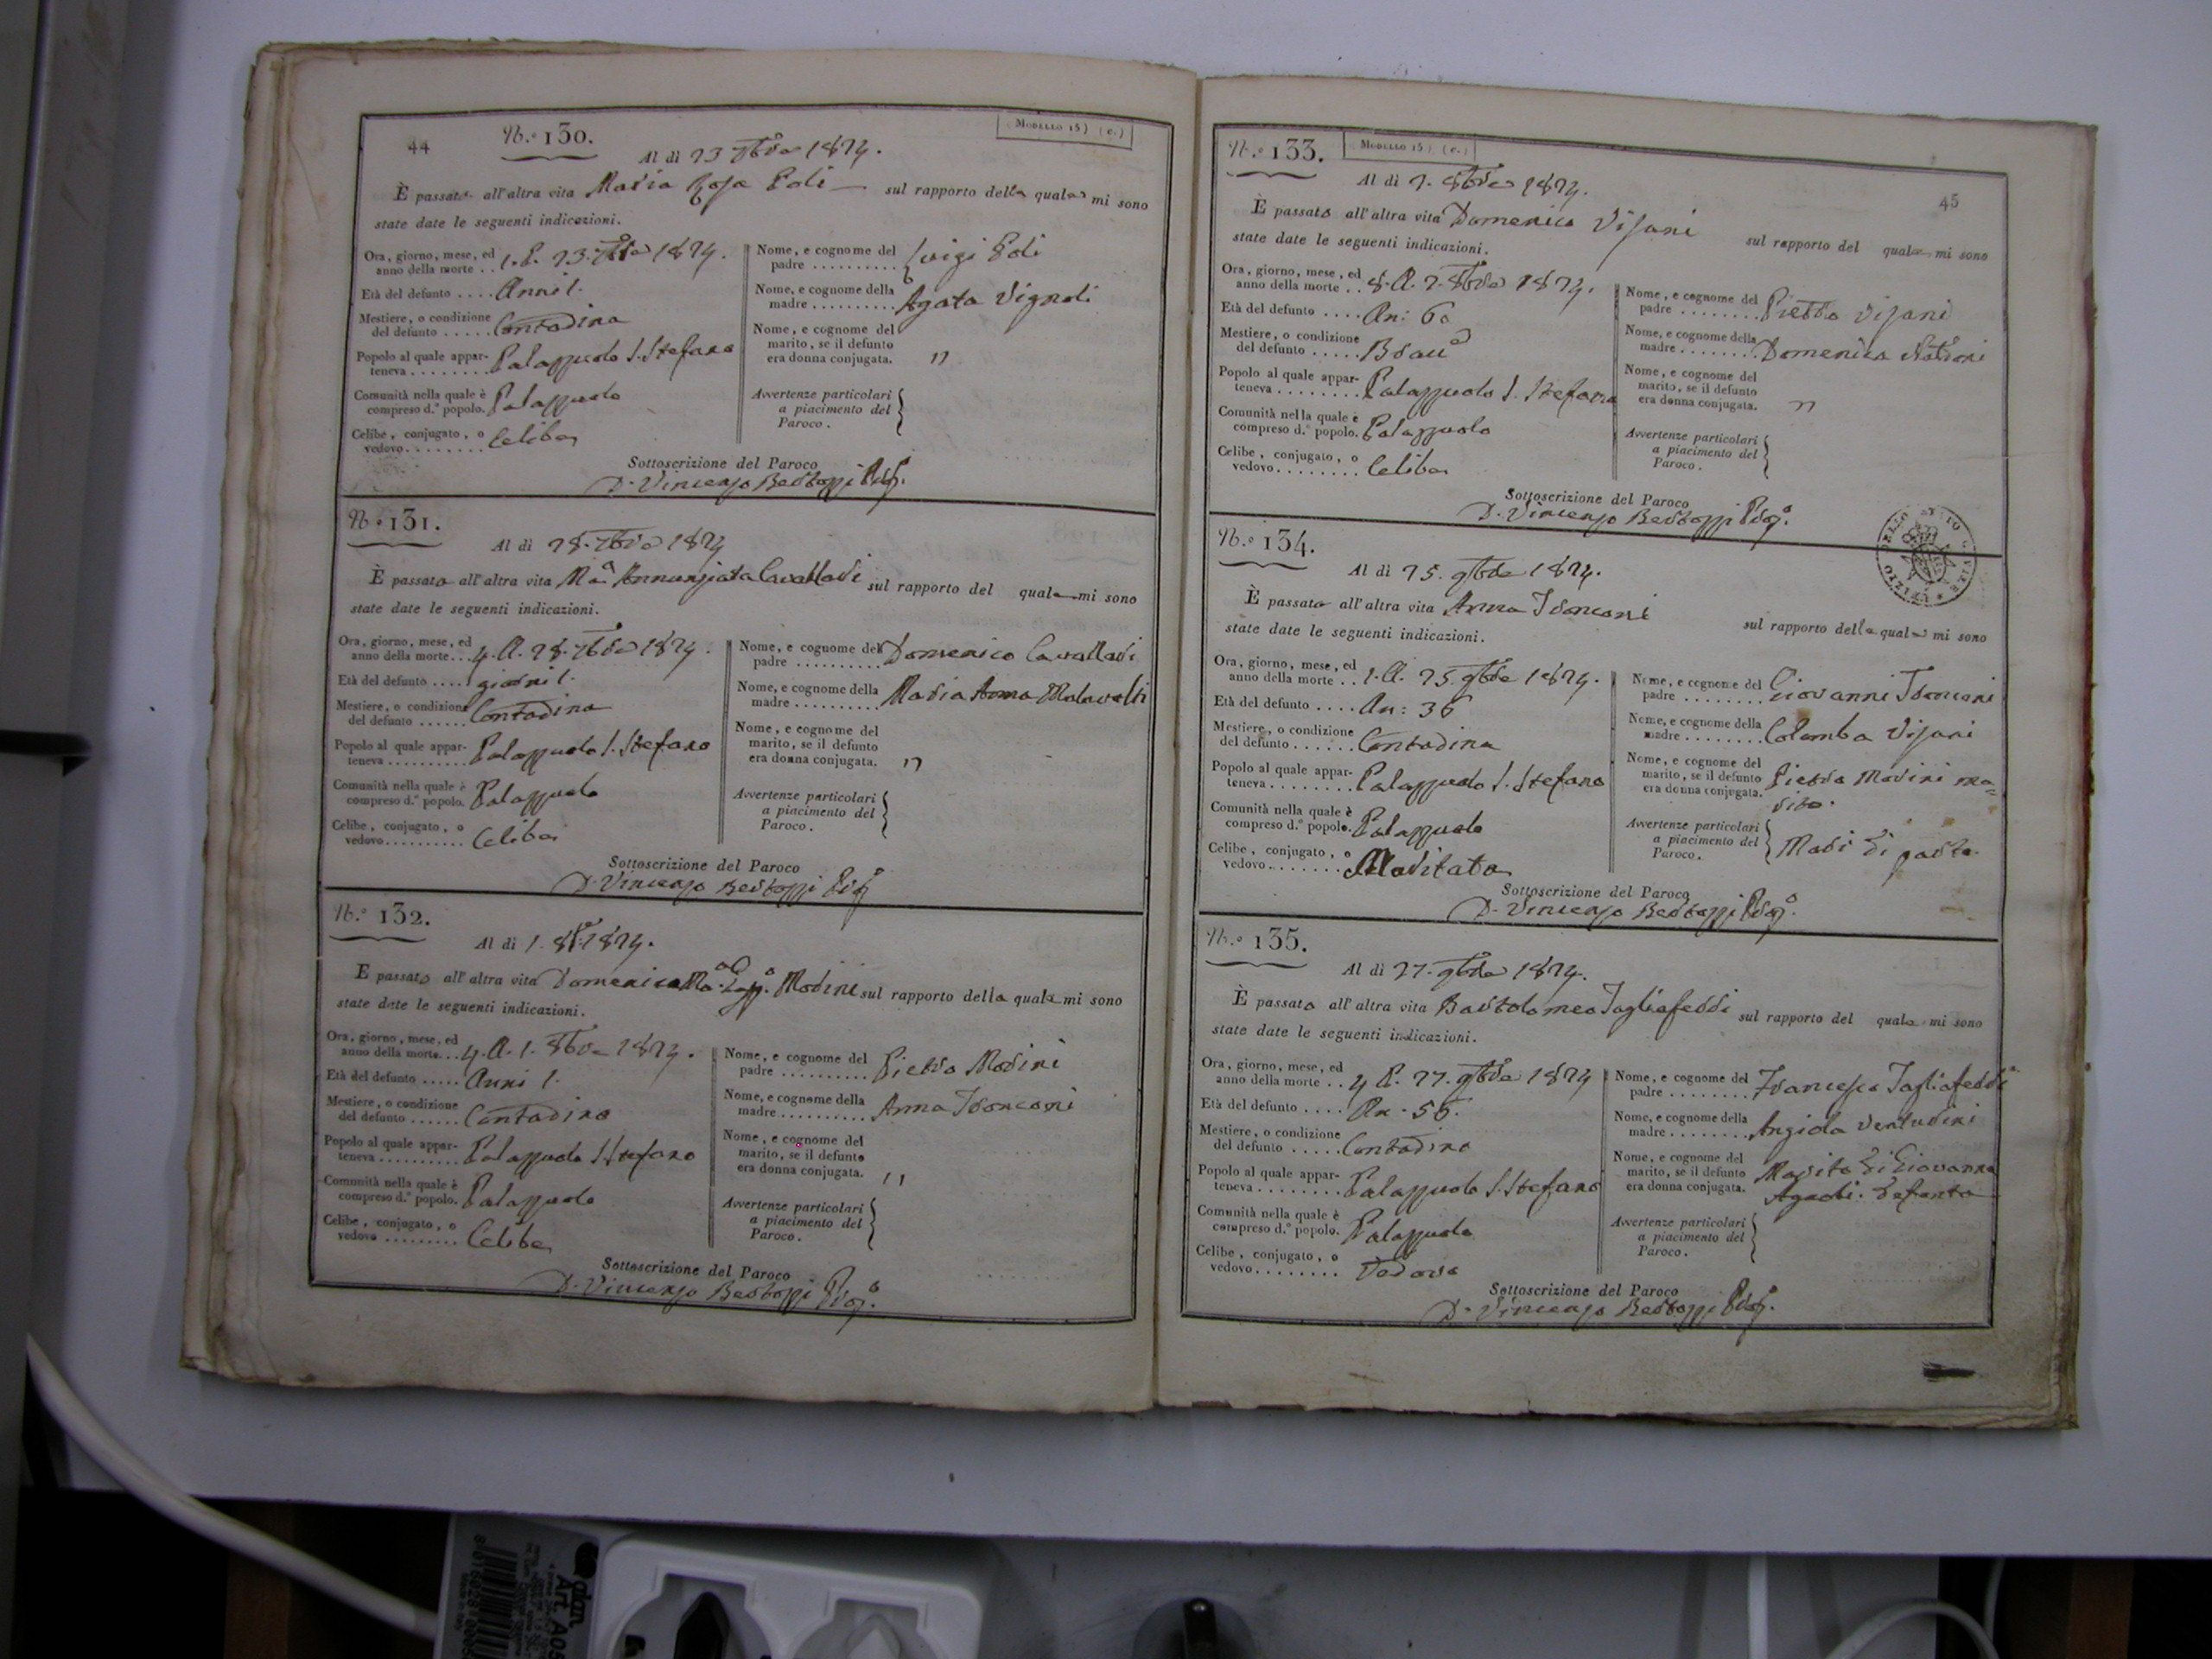 44
N.° 130.
Modello 15) (c.)
Al dì 23 7bre 1824.
È passata all'altra vita Maria Rosa Poli sul rapporto della quale mi sono
state date le seguenti indicazioni.
Ora, giorno, mese, ed
anno della morte .. 1. P. 23. 7bre 1824.
Età del defunto .... Anni 1.
Mestiere, o condizione
del defunto ..... Contadina
Popolo al quale appar-
teneva ........ Palazzuolo S. Stefano
Comunità nella quale è
compreso d.° popolo. Palazzuolo
Celibe, conjugato, o
vedovo ........ Celibe
Nome, e cognome del
padre .......... Luigi Poli
Nome, e cognome della
madre .......... Agata Vignoli
Nome, e cognome del
marito, se il defunto
era donna conjugata. "
Avvertenze particolari
a piacimento del
Paroco.
Sottoscrizione del Paroco
D. Vincenzo Bertozzi
N.° 131.
Al dì 28. 7bre 1824
È passata all'altra vita Ma. Annunziata Cavallari sul rapporto del quale mi sono
state date le seguenti indicazioni.
Ora, giorno, mese, ed
anno della morte ... 4. A. 28. 7bre 1824.
Età del defunto .... giorni 1.
Mestiere, o condizione
del defunto ...... Contadina
Popolo al quale appar-
teneva .......... Palazzuolo S. Stefano
Comunità nella quale è
compreso d.° popolo. Palazzuolo
Celibe, conjugato, o
vedovo .......... Celibe
Nome, e cognome del
padre .......... Domenico Cavallari
Nome, e cognome della
madre .......... Maria Anna Malavolti
Nome, e cognome del
marito, se il defunto
era donna conjugata. "
Avvertenze particolari
a piacimento del
Paroco.
Sottoscrizione del Paroco
D. Vincenzo Bertozzi
N.° 132.
Al dì 1. 8bre 1824.
È passato all'altra vita Domenico Ma. Modini sul rapporto della quale mi sono
state date le seguenti indicazioni.
Ora, giorno, mese, ed
anno della morte ... 4. A. 1. 8bre 1824.
Età del defunto ..... Anni 1.
Mestiere, o condizione
del defunto ...... Contadino
Popolo al quale appar-
teneva .......... Palazzuolo S. Stefano
Comunità nella quale è
compreso d.° popolo. Palazzuolo
Celibe, conjugato, o
vedovo ......... Celibe
Nome, e cognome del
padre .......... Pietro Modini
Nome, e cognome della
madre .......... Anna Tronconi
Nome, e cognome del
marito, se il defunto
era donna conjugata. "
Avvertenze particolari
a piacimento del
Paroco.
Sottoscrizione del Paroco
D. Vincenzo Bertozzi
N.° 133.
Modello 15) (c.)
45
Al dì 2. 8bre 1824.
È passato all'altra vita Domenico Visani sul rapporto del quale mi sono
state date le seguenti indicazioni.
Ora, giorno, mese, ed
anno della morte .. 8. A. 2. 8bre 1824.
Età del defunto .... An: 60
Mestiere, o condizione
del defunto .....
Popolo al quale appar-
teneva ........ Palazzuolo S. Stefano
Comunità nella quale è
compreso d.° popolo. Palazzuolo
Celibe, conjugato, o
vedovo ........ Celibe
Nome, e cognome del
padre ........ Pietro Visani
Nome, e cognome della
madre ....... Domenica Naldoni
Nome, e cognome del
marito, se il defunto
era donna conjugata. "
Avvertenze particolari
a piacimento del
Paroco.
Sottoscrizione del Paroco
D. Vincenzo Bertozzi
N.° 134.
Al dì 25. 9bre 1824.
È passato all'altra vita Anna Tronconi sul rapporto della quale mi sono
state date le seguenti indicazioni.
Ora, giorno, mese, ed
anno della morte .. 1. A. 25. 9bre 1824.
Età del defunto .... An: 36
Mestiere, o condizione
del defunto ...... Contadina
Popolo al quale appar-
teneva ........ Palazzuolo S. Stefano
Comunità nella quale è
compreso d.° popolo. Palazzuolo
Celibe, conjugato, o
vedovo ....... Maritata
Nome, e cognome del
padre ........ Giovanni Tronconi
Nome, e cognome della
madre ........ Colomba Visani
Nome, e cognome del
marito, se il defunto
era donna conjugata. Pietro Modini ma=
rito.
Avvertenze particolari
a piacimento del
Paroco. Morì di parto.
Sottoscrizione del Paroco
D. Vincenzo Bertozzi
N.° 135.
Al dì 27. 9bre 1824.
È passato all'altra vita Bartolomeo Tagliaferri sul rapporto del quale mi sono
state date le seguenti indicazioni.
Ora, giorno, mese, ed
anno della morte .. 4 P. 27. 9bre 1824
Età del defunto .... An. 56.
Mestiere, o condizione
del defunto ..... Contadino
Popolo al quale appar-
teneva ........ Palazzuolo S. Stefano
Comunità nella quale è
compreso d.° popolo. Palazzuolo
Celibe, conjugato, o
vedovo ........ Vedovo
Nome, e cognome del
padre ........ Francesco Tagliaferri
Nome, e cognome della
madre ........ Angiola Venturini
Nome, e cognome del
marito, se il defunto
era donna conjugata. Marito di Giovanna
defonta
Avvertenze particolari
a piacimento del
Paroco.
Sottoscrizione del Paroco
D. Vincenzo Bertozzi